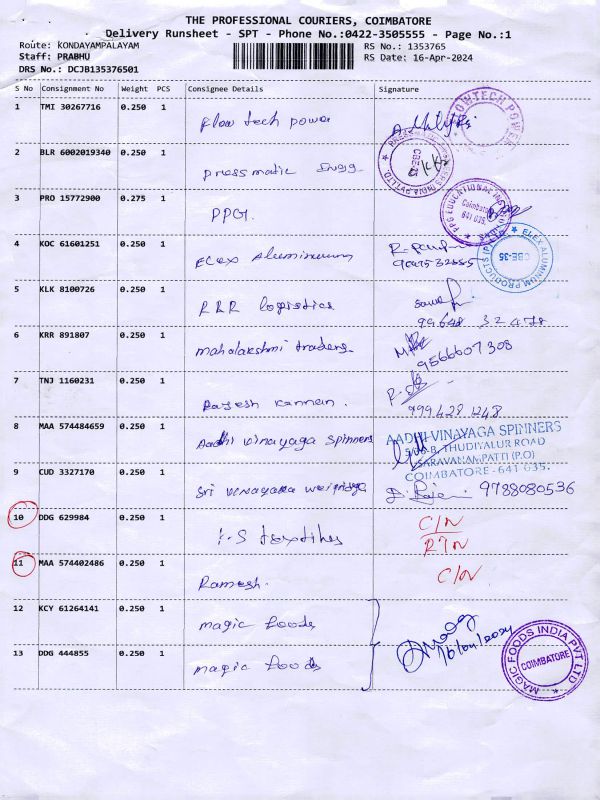 THE PROFESSIONAL COURIERS, COIMBATORE
Delivery Runsheet - SPT - Phone No.:0422-3505555 - Page No.:1
Route: KONDAYAMPALAYAM
RS No.: 1353765
Staff: PRABHU
RS Date: 16-Apr-2024
DRS No.: DCJB135376501
S No Consignment No Weight PCS Consignee Details Signature
1 TMI 30267716 0.250 1 Flow tech power
2 BLR 6002019340 0.250 1 Pressmatic Engg.
3 PRO 15772900 0.275 1 PPG.
4 KOC 61601251 0.250 1 Elex Aluminium
5 KLK 8100726 0.250 1 RRR logistics
99648 32478
6 KRR 891807 0.250 1 mahalakshmi traders
9566607308
7 TNJ 1160231 0.250 1 Rajesh kannan
999428 1248
8 MAA 574484659 0.250 1 Aadhi vinayaga spinners
AADHI VINAYAGA SPINNERS
THUDIYALUR ROAD
SARAVANAMPATTI (P.O)
COIMBATORE - 641 035.
9 CUD 3327170 0.250 1 Sri vinayaka
9788080536
10 DDG 629984 0.250 1 K-S textiles C/N
RTN
11 MAA 574402486 0.250 1 Ramesh. C/N
12 KCY 61264141 0.250 1 magic foods
16/04/2024
13 DDG 444855 0.250 1 magic foods
MAGIC FOODS INDIA PVT LTD
COIMBATORE